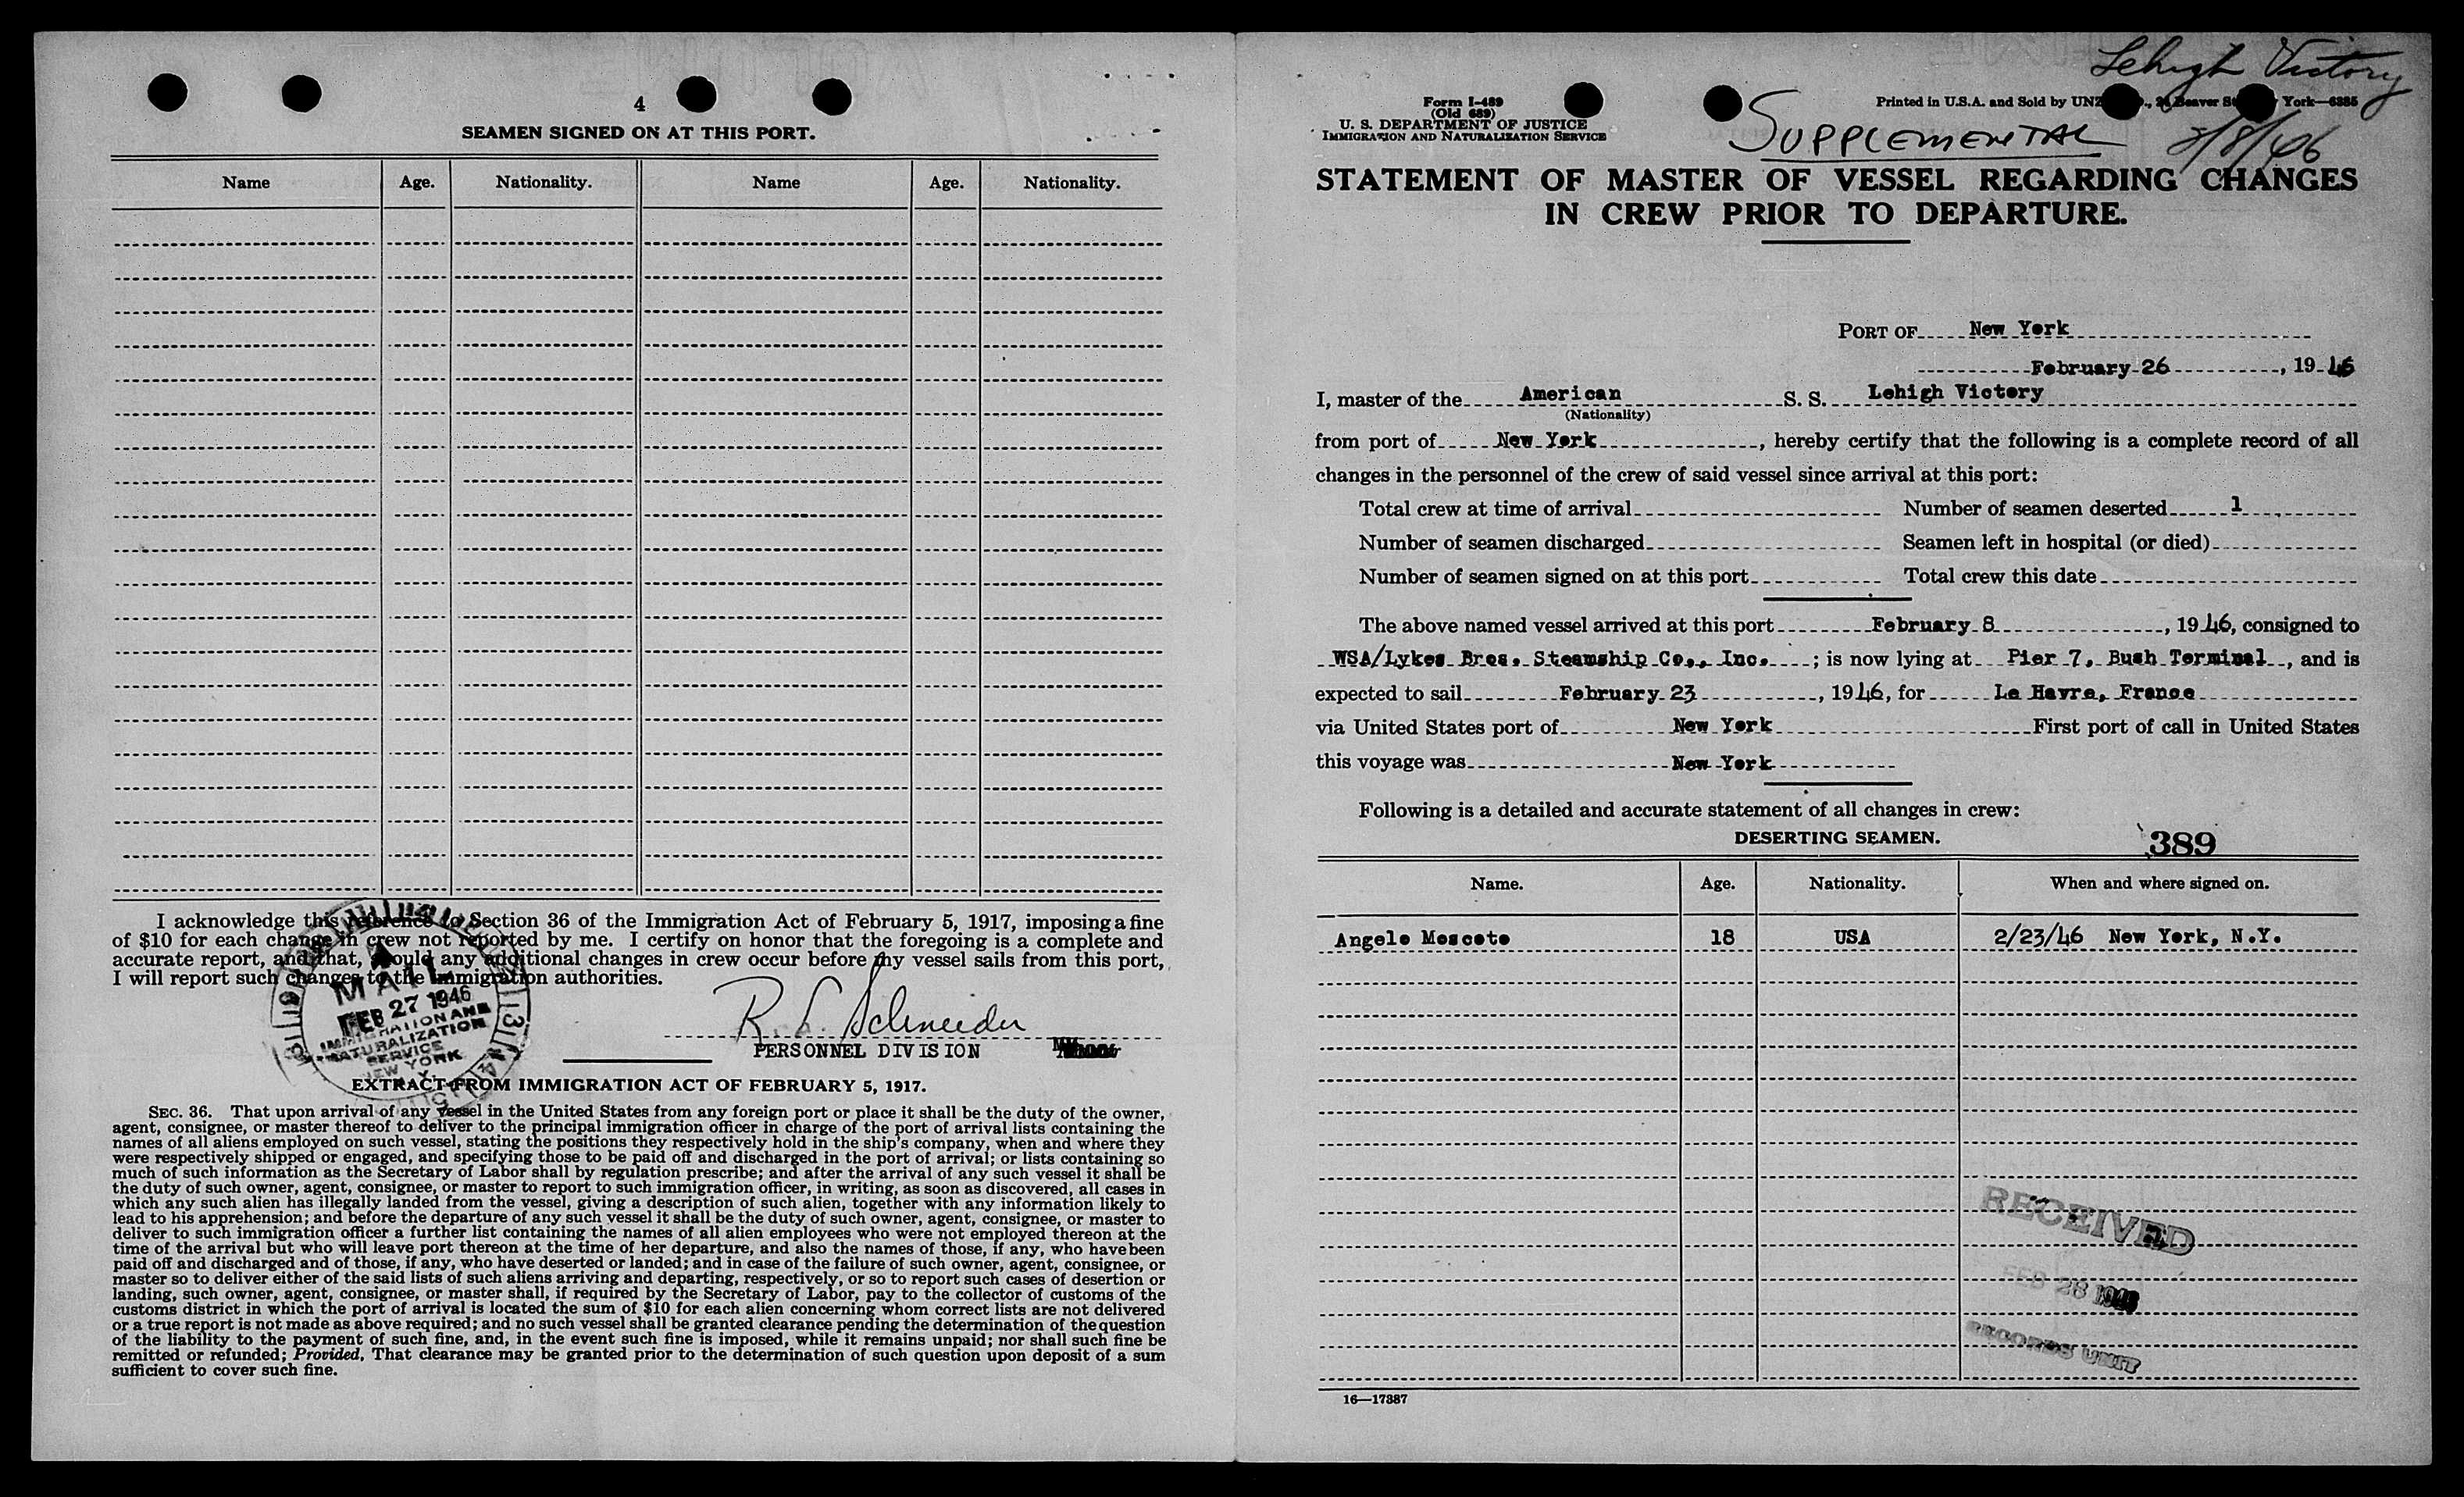 4
SEAMEN SIGNED ON AT THIS PORT.
Name Age. Nationality. Name Age. Nationality.
I acknowledge this reference to Section 36 of the Immigration Act of February 5, 1917, imposing a fine
of $10 for each change in crew not reported by me. I certify on honor that the foregoing is a complete and
accurate report, and that, should any additional changes in crew occur before my vessel sails from this port,
I will report such changes to the immigration authorities.
MAIL
FEB 27 1946
IMMIGRATION AND
NATURALIZATION
SERVICE
NEW YORK
N. Y.
R. S. Schneider
PERSONNEL DIVISION
EXTRACT FROM IMMIGRATION ACT OF FEBRUARY 5, 1917.
SEC. 36. That upon arrival of any vessel in the United States from any foreign port or place it shall be the duty of the owner,
agent, consignee, or master thereof to deliver to the principal immigration officer in charge of the port of arrival lists containing the
names of all aliens employed on such vessel, stating the positions they respectively hold in the ship's company, when and where they
were respectively shipped or engaged, and specifying those to be paid off and discharged in the port of arrival; or lists containing so
much of such information as the Secretary of Labor shall by regulation prescribe; and after the arrival of any such vessel it shall be
the duty of such owner, agent, consignee, or master to report to such immigration officer, in writing, as soon as discovered, all cases in
which any such alien has illegally landed from the vessel, giving a description of such alien, together with any information likely to
lead to his apprehension; and before the departure of any such vessel it shall be the duty of such owner, agent, consignee, or master to
deliver to such immigration officer a further list containing the names of all alien employees who were not employed thereon at the
time of the arrival but who will leave port thereon at the time of her departure, and also the names of those, if any, who have been
paid off and discharged and of those, if any, who have deserted or landed; and in case of the failure of such owner, agent, consignee, or
master so to deliver either of the said lists of such aliens arriving and departing, respectively, or so to report such cases of desertion or
landing, such owner, agent, consignee, or master shall, if required by the Secretary of Labor, pay to the collector of customs of the
customs district in which the port of arrival is located the sum of $10 for each alien concerning whom correct lists are not delivered
or a true report is not made as above required; and no such vessel shall be granted clearance pending the determination of the question
of the liability to the payment of such fine, and, in the event such fine is imposed, while it remains unpaid; nor shall such fine be
remitted or refunded; Provided, That clearance may be granted prior to the determination of such question upon deposit of a sum
sufficient to cover such fine.
Lehigh Victory
Form I-489
(Old 689)
U. S. DEPARTMENT OF JUSTICE
IMMIGRATION AND NATURALIZATION SERVICE
Printed in U.S.A. and Sold by UNZ Beaver York—6385
SUPPLEMENTAL 2/8/46
STATEMENT OF MASTER OF VESSEL REGARDING CHANGES
IN CREW PRIOR TO DEPARTURE.
PORT OF New York
February 26, 1946
I, master of the American S. S. Lehigh Victory
(Nationality)
from port of New York, hereby certify that the following is a complete record of all
changes in the personnel of the crew of said vessel since arrival at this port:
Total crew at time of arrival Number of seamen deserted 1
Number of seamen discharged Seamen left in hospital (or died)
Number of seamen signed on at this port Total crew this date
The above named vessel arrived at this port February 8, 1946, consigned to
WSA/Lykes Bros. Steamship Co., Inc. ; is now lying at Pier 7, Bush Terminal, and is
expected to sail February 23, 1946, for Le Havre, France
via United States port of New York First port of call in United States
this voyage was New York
Following is a detailed and accurate statement of all changes in crew:
DESERTING SEAMEN. 389
Name. Age. Nationality. When and where signed on.
Angelo Moscoto 18 USA 2/23/46 New York, N.Y.
RECEIVED
FEB 28 1946
RECORDS UNIT
16—17387